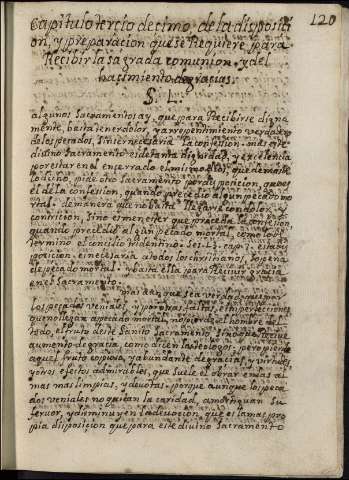 120
Capitulo tercio decimo de la disposici
on, y preparacion que se Requiere para
Recibir la sagrada comunion y del
hacimiento de gracias.
§. 1.
algunos Sacramentos ay, que para Recibirse digna
mente, basta tener dolor, y arrepentimiento verdadero
de los pecados, sin ser necesaria la confesion. mas este
divino Sacramento es de tanta dignidad, y excelencia
por estar en el encerrado el mismo Dios, que demas de
lo dicho, pide otro Sacramento por disposicion, que es
el de la confession, quando precedio algun pecado mo
rtal. de manera que no basta llegar con dolor, y
contricion, sino es menester que preceda la confesion,
quando precedio algun pecado mortal, como lo de
termino el concilio tridentino. Ses. 13. cap. 7. esta dis
posicion, es necesaria a todos los christianos, so pena
de pecado mortal. y basta ella para Recivir gracia
en este Sacramento.
mas aun que sea verdad, que por
los pecados veniales, y por otras faltas, e imperfectiones
que no llegan a pecado mortal, no pierde el hombre de
todo, el fruto de este Santo Sacramento, sino Recibe
aumento de gracia como dicen los teologos: pero pierde
aquel fruto copioso, y abundante de gracias, y virtudes
y otros efectos admirables, que Suele el obrar en las al
mas mas limpias, y devotas. porque aunque los peca
dos veniales no quitan la caridad, amortiguan Su
fervor, y disminuyen la devocion, que es la mas pro
pia disposicion que para este divino Sacramento